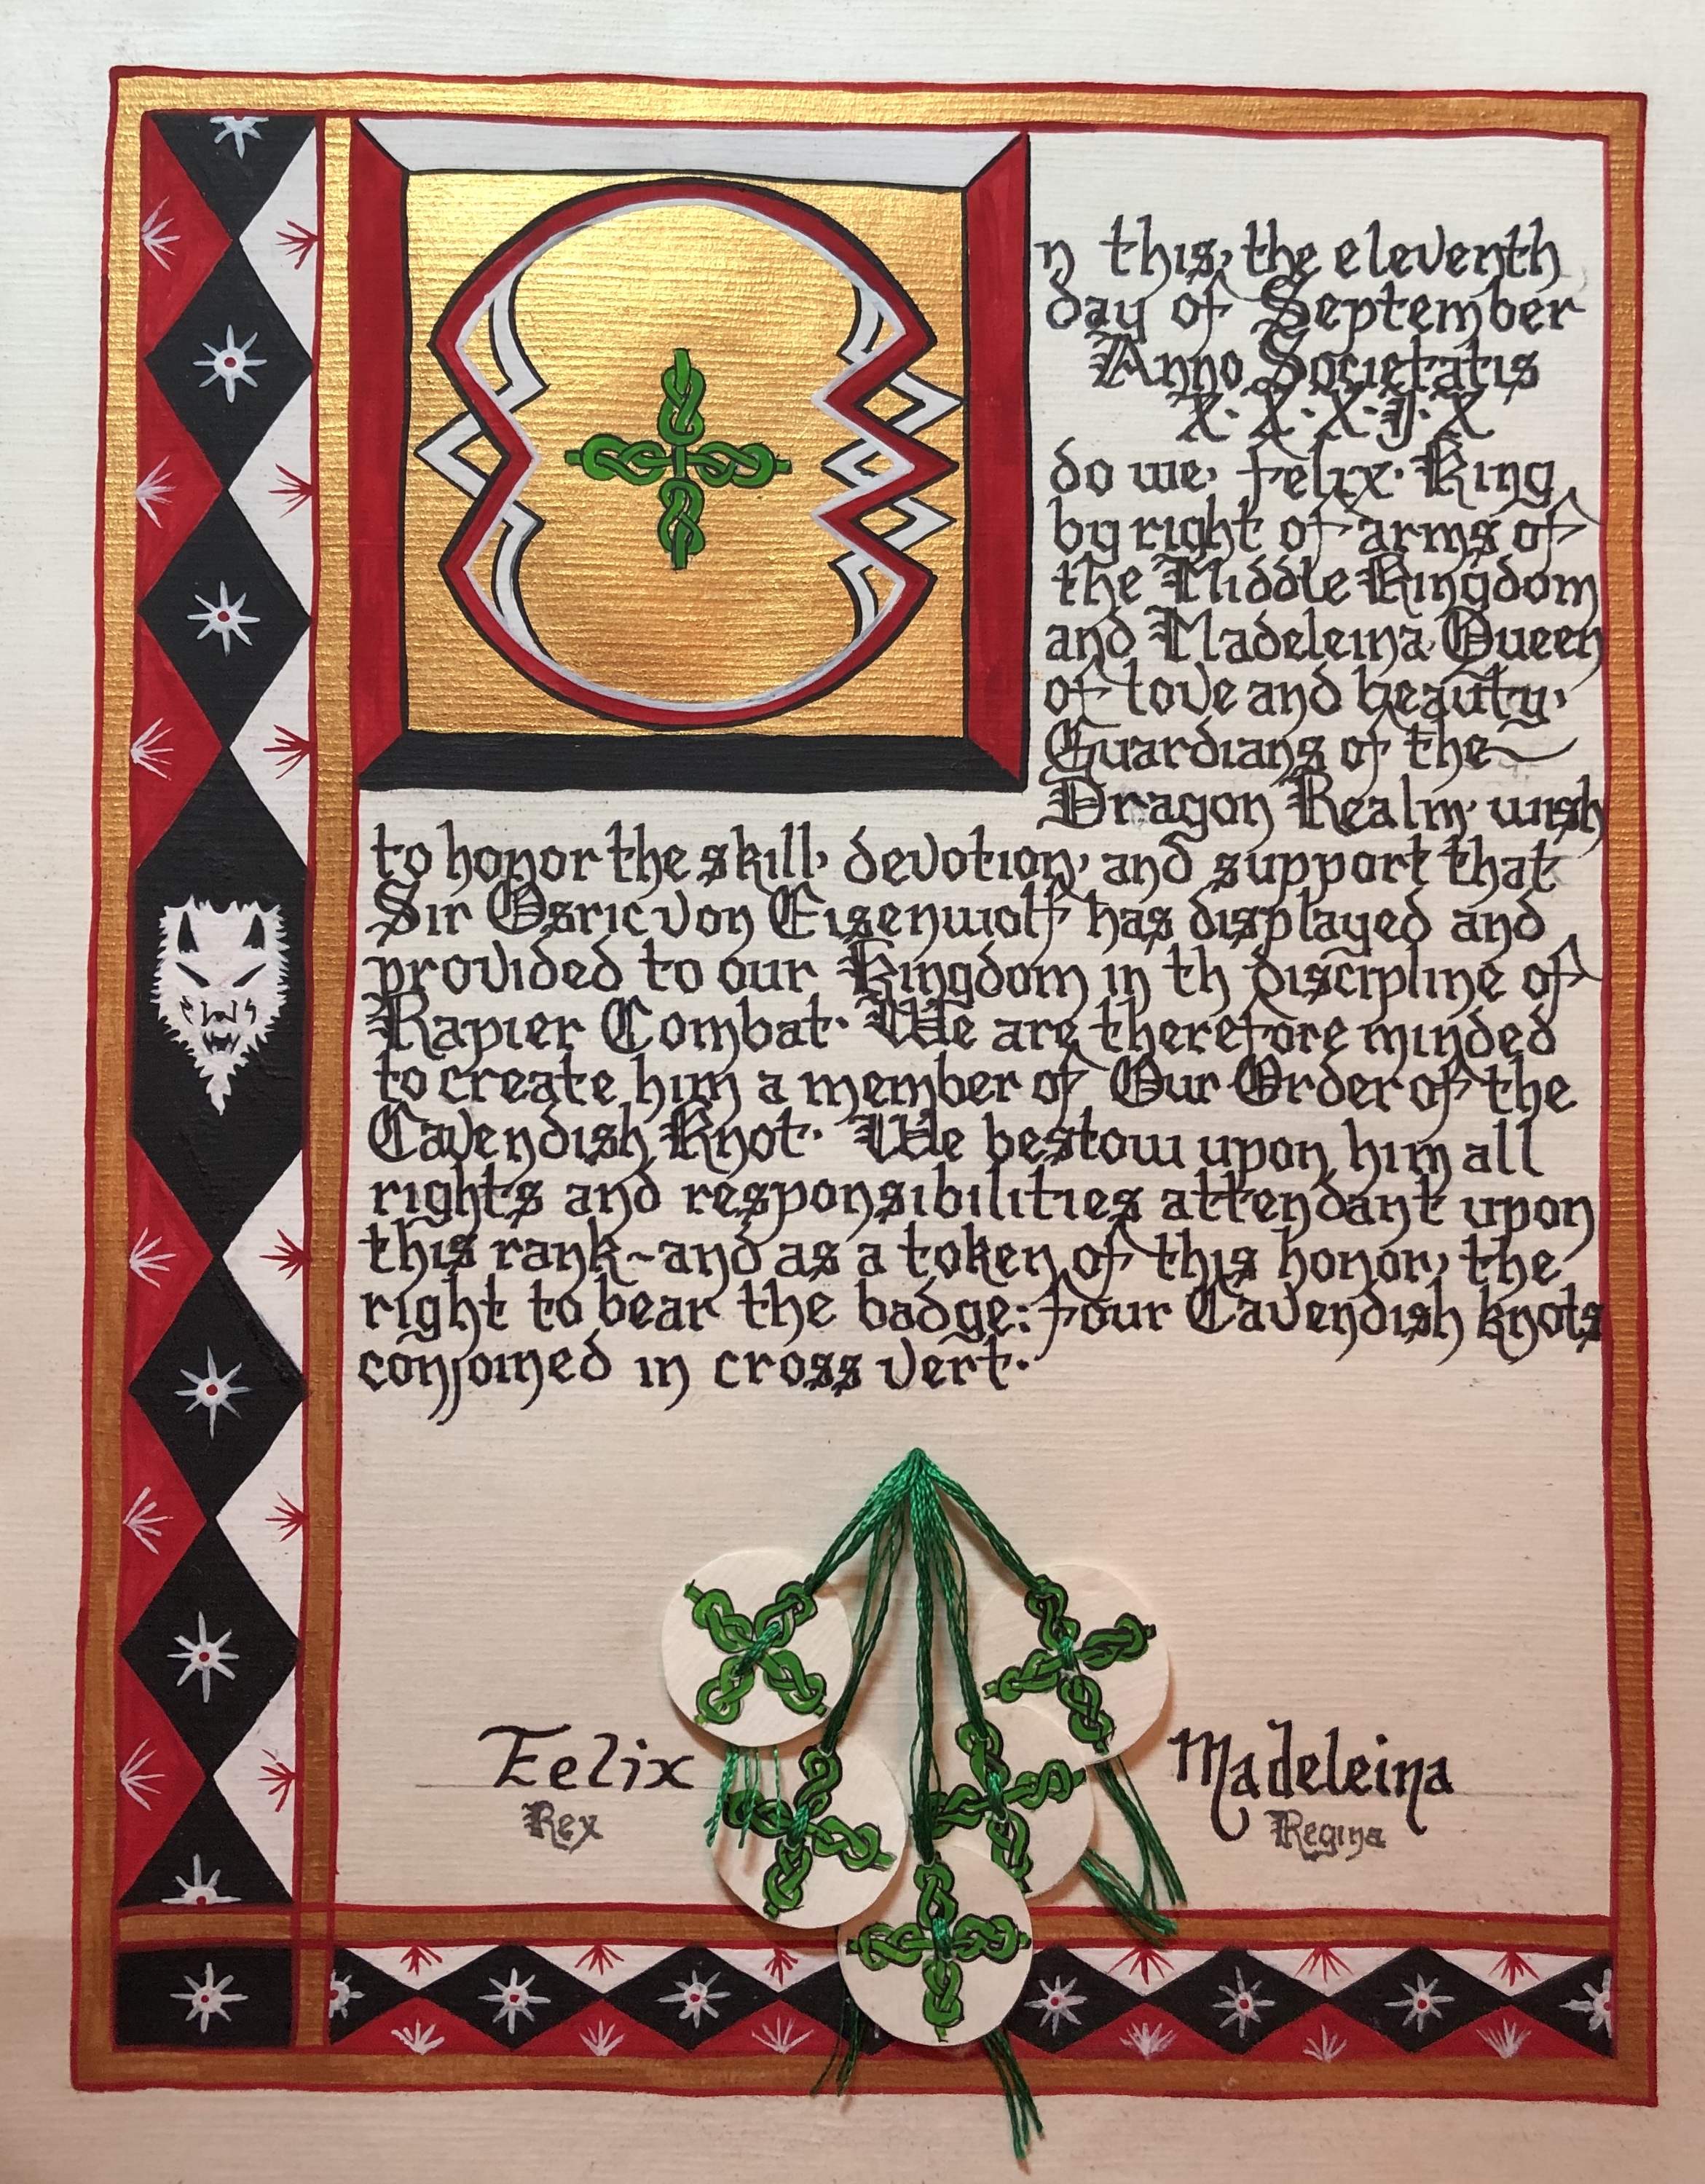 On this, the eleventh
day of September
Anno Societatis
X·X·X·I·X
do we, Felix, King
by right of arms of
the Middle Kingdom
and Madeleina, Queen
of love and beauty,
Guardians of the
Dragon Realm, wish
to honor the skill, devotion, and support that
Sir Osric von Eisenwolf has displayed and
provided to our Kingdom in th discipline of
Rapier Combat. We are therefore minded
to create him a member of Our Order of the
Cavendish Knot. We bestow upon him all
rights and responsibilities attendant upon
this rank~and as a token of this honor, the
right to bear the badge: four Cavendish knots
conjoined in cross vert.
Felix
Rex
Madeleina
Regina